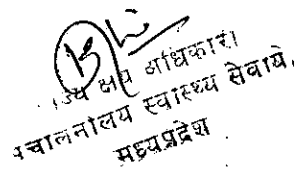 राज्य क्षय अधिकारी
संचालनालय स्वास्थ्य सेवायें,
मध्यप्रदेश